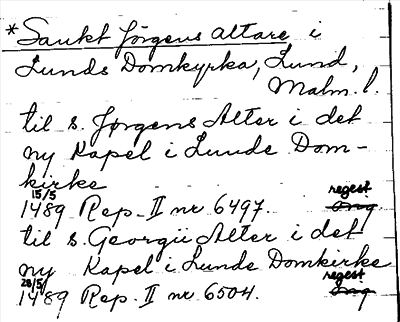 *Sankt Jörgens altare i
Lunds Domkyrka, Lund,
Malm. l.
til s. Jørgens Alter i det
ny Kapel i Lunde Dom-
kirke
15/5 regest
1489 Rep. II nr 6497. orig.
til s. Georgii Alter i det
ny Kapel i Lunde Domkirke
20/5 regest
1489 Rep. II nr 6504. orig.